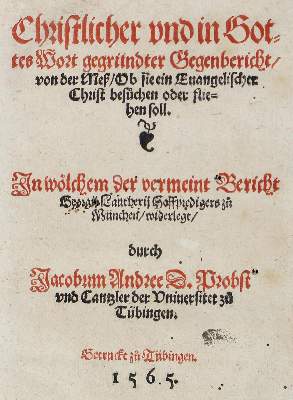 Christlicher vnd in Got-
tes Wort gegründter Gegenbericht/
von der Meß/ Ob sie ein Euangelischer
Christ besüchen oder flie-
hen soll.
In wölchem der vermeint Bericht
Georgij Lautherij Hoffpredigers zů
München/ widerlegt/
durch
Jacobum Andree D. Probst
vnd Cantzler der Vniuersitet zů
Tübingen.
Getruckt zů Tübingen.
1565.